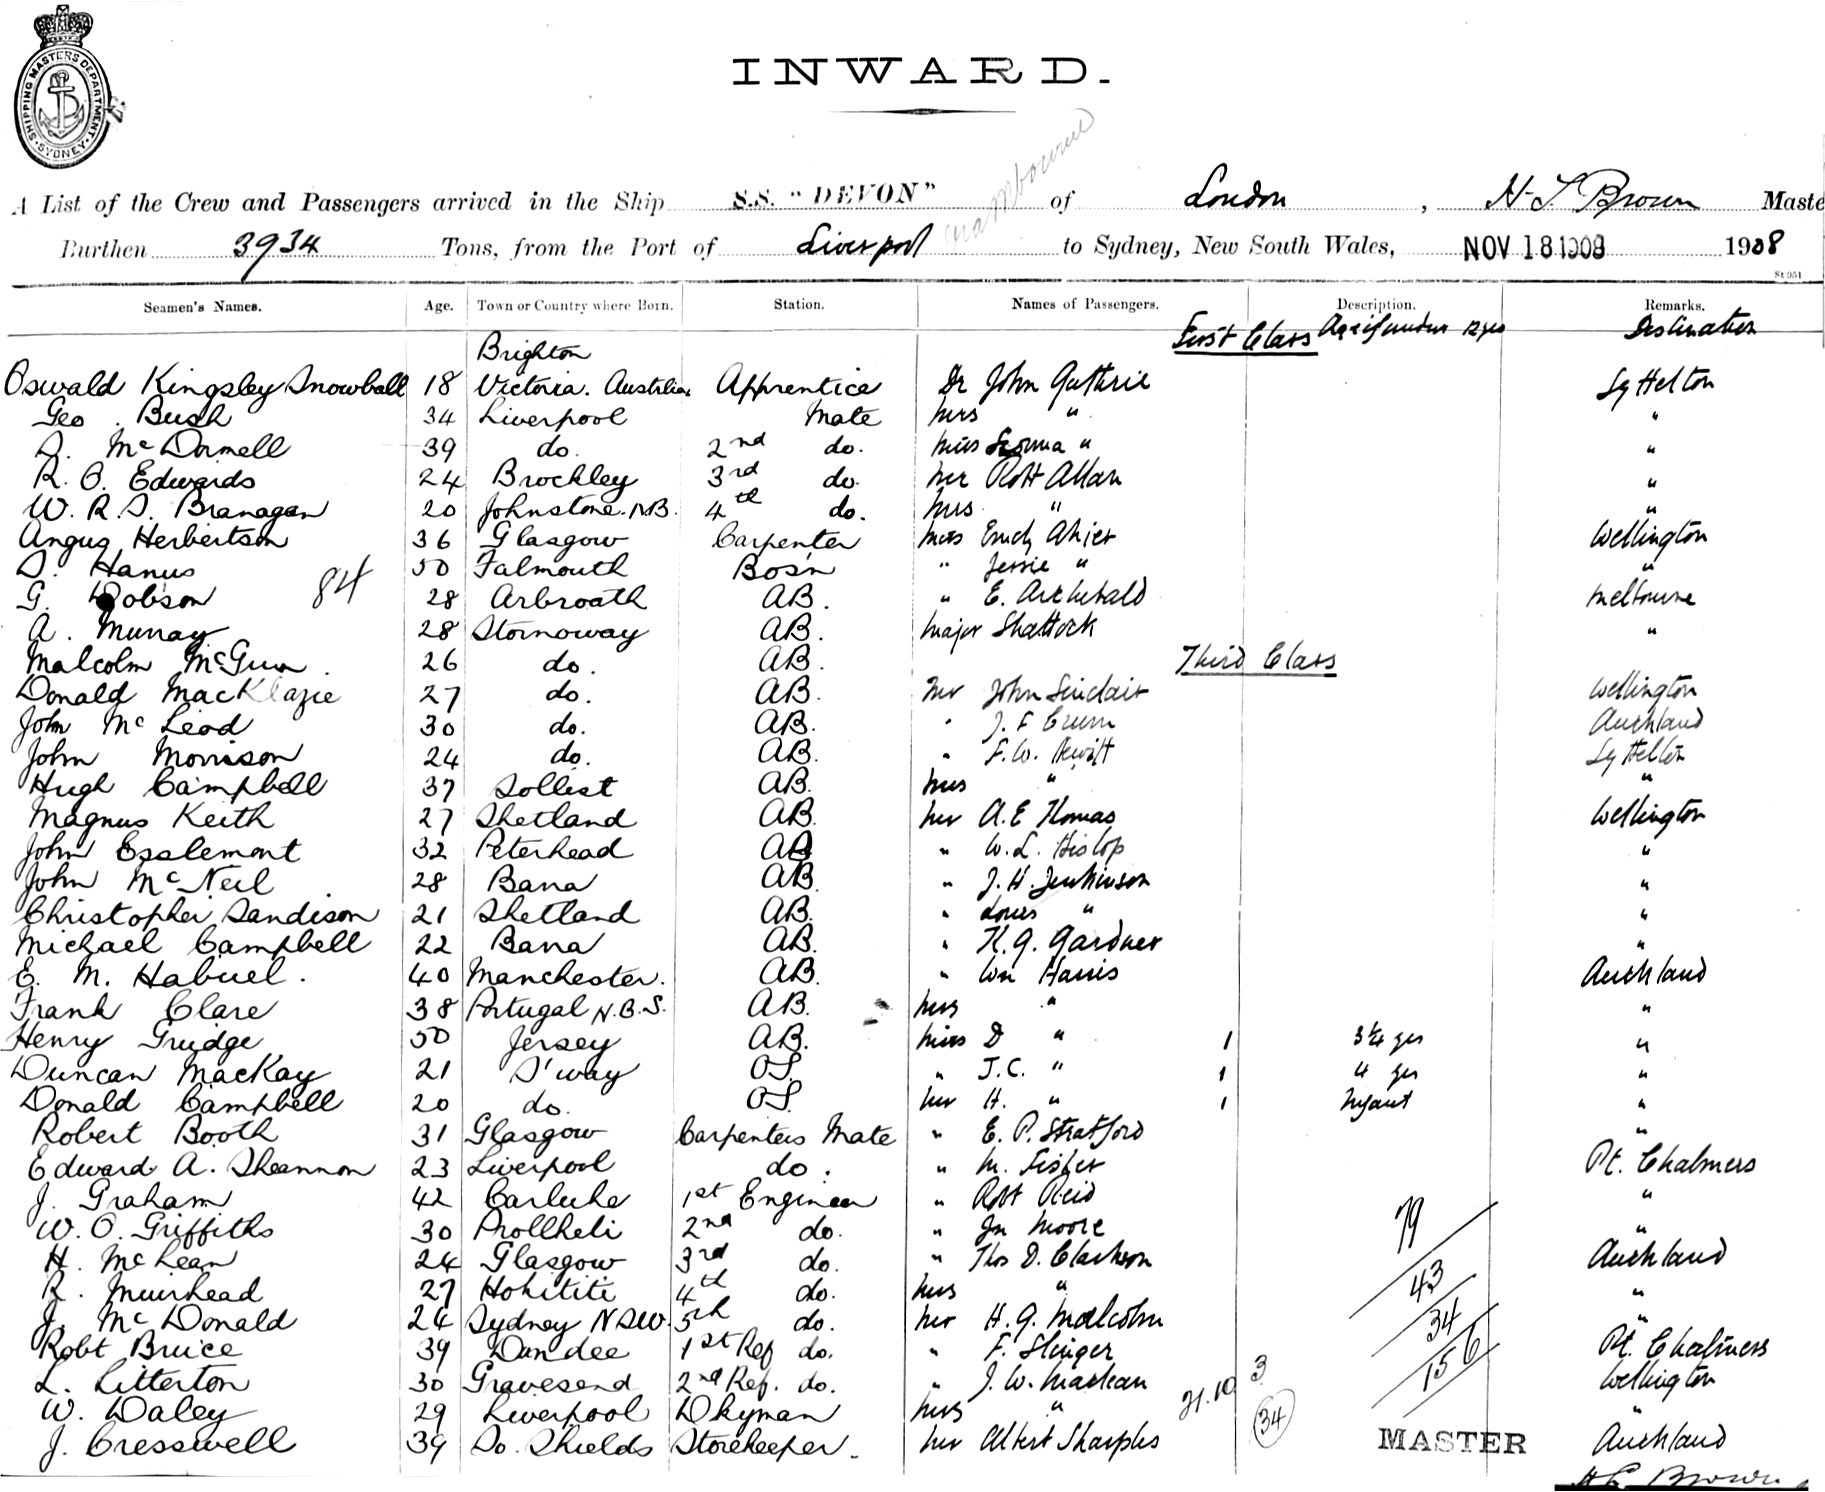 SHIPPING MASTERS DEPARTMENT · SYDNEY ·
INWARD.
A List of the Crew and Passengers arrived in the Ship S.S. "DEVON" of London, H. Brown Maste
Burthen 3934 Tons, from the Port of Liverpool to Sydney, New South Wales, NOV 18 1908 1908
St 951
Seamen's Names. Age. Town or Country where Born. Station. Names of Passengers. Description. Remarks.
First Class Age if under 12 yrs Destination
Brighton
Oswald Kingsley Snowball 18 Victoria. Australia Apprentice Dr John Guthrie Lyttelton
Geo. Bush 34 Liverpool Mate Mrs " "
D. McDonnell 39 do. 2nd do. Miss " "
R. O. Edwards 24 Brockley 3rd do. Mr Robt Allan "
W. R. S. Branagan 20 Johnstone. N.B. 4th do. Mrs " "
Angus Herbertson 36 Glasgow Carpenter Miss Emily Ahier Wellington
D. Hanus 50 Falmouth Bos'n " Jessie " "
84
G. Dobson 28 Arbroath AB. " E. Archibald Melbourne
A. Murray 28 Stornoway AB. Major Shattock "
Malcolm McGunn 26 do. AB. Third Class
Donald MacKlazie 27 do. AB. Mr John Sinclair Wellington
John McLeod 30 do. AB. " J. F. Crum Auckland
John Morrison 24 do. AB. " F. W. Hewitt Lyttelton
Hugh Campbell 37 Sollest AB. Mrs " "
Magnus Keith 27 Shetland AB. Mr A. E Thomas Wellington
John Esslemont 32 Peterhead AB " W. L. Hislop "
John McNeil 28 Barra AB. " J. H. Jenkinson "
Christopher Sandison 21 Shetland AB. " Louis " "
Michael Campbell 22 Barra AB. " H. G. Gardner "
E. M. Habuel. 40 Manchester. AB. " Wm Harris Auckland
Frank Clare 38 Portugal N.B.S. AB. Mrs " "
Henry Gridge 50 Jersey AB. Miss D " 1 3¼ yrs "
Duncan MacKay 21 S'way OS. " J. C. " 1 4 yrs "
Donald Campbell 20 do. OS. Mr H. " 1 Infant "
Robert Booth 31 Glasgow Carpenters Mate " E. P. Stratford "
Edward A. Sheannon 23 Liverpool do. " M. Fisher Pt. Chalmers
J. Graham 42 Carluke 1st Engineer " Robt Reid "
W. O. Griffiths 30 Prollheli 2nd do. " Jn Moore "
H. McLean 24 Glasgow 3rd do. " Thos D. Clarkson Auckland
R. Muirhead 27 Hokititi 4th do. Mrs " "
J. McDonald 24 Sydney NSW. 5th do. Mr H. G. Malcolm "
Robt Bruce 39 Dundee 1st Ref do. " F. Slinger Pt. Chalmers
L. Litterton 30 Gravesend 2nd Ref. do. " J. W. Maclean Wellington
W. Daley 29 Liverpool Dkyman Mrs " "
J. Cresswell 39 So. Shields Storekeeper. Mr Albert Sharples Auckland
79
43
34
156
21.10 3
34
MASTER
Brown